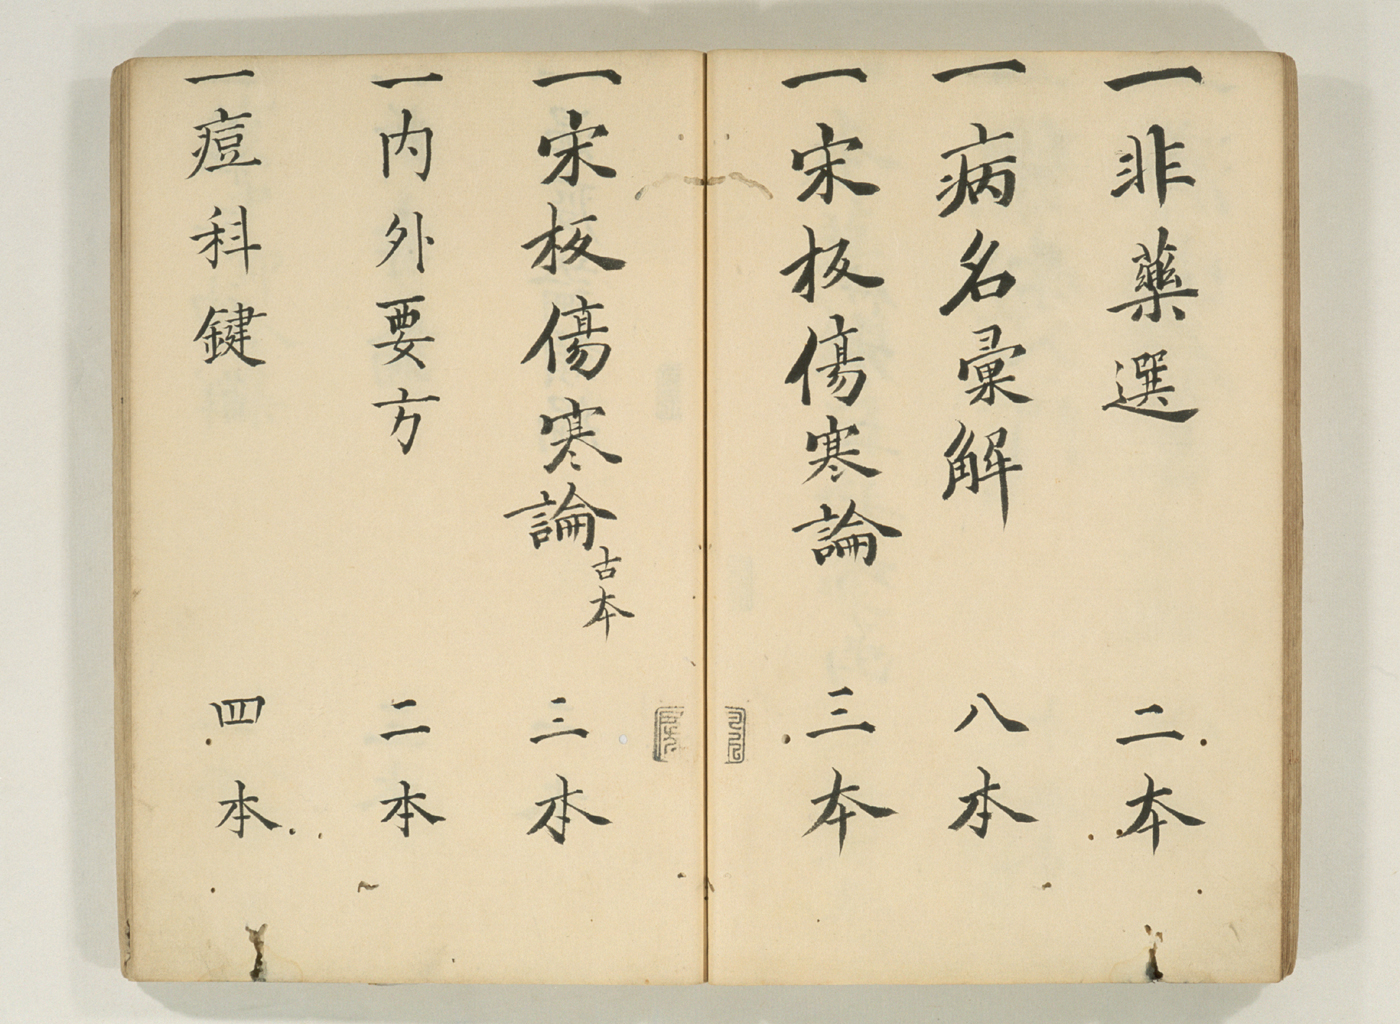 一非藥選 二本
一病名彙解 八本
一宋板傷寒論 三本
一宋板傷寒論古本 三本
一内外要方 二本
一痘科鍵 四本